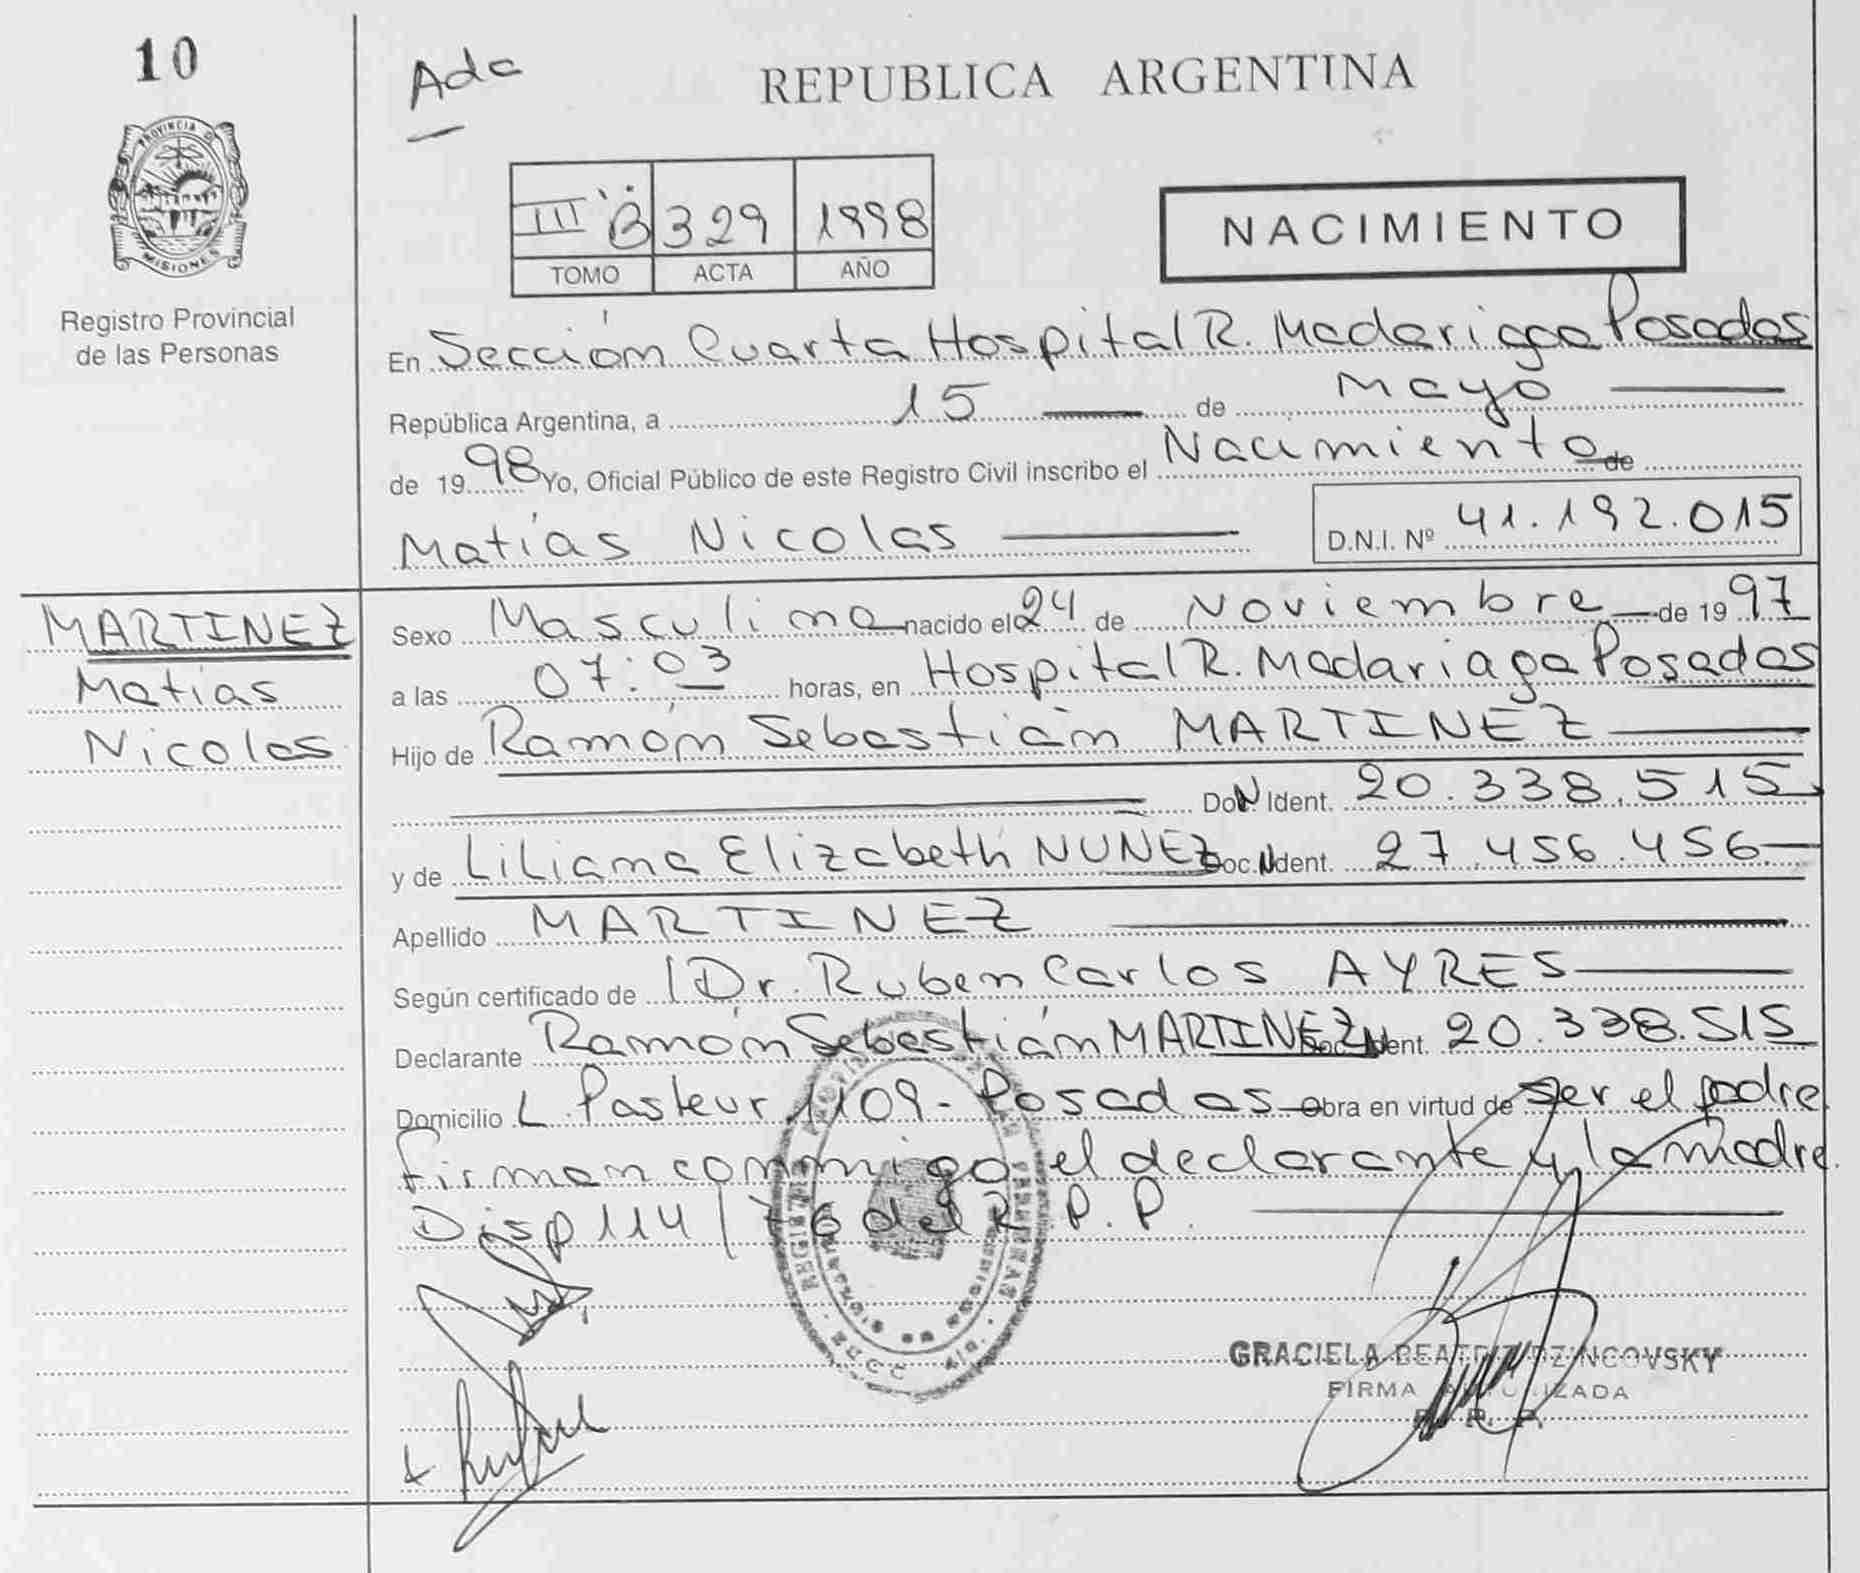 10
Ada
REPUBLICA ARGENTINA
PROVINCIA D
MISIONES
Registro Provincial
de las Personas
III B 329 1998
TOMO ACTA AÑO
NACIMIENTO
En Sección Cuarta Hospital R. Madariaga Posadas
República Argentina, a 15 de Mayo
de 1998 Yo, Oficial Público de este Registro Civil inscribo el Nacimiento de
Matías Nicolas
D.N.I. Nº 41.192.015
MARTINEZ
Matias
Nicolas
Sexo Masculino nacido el 24 de Noviembre de 1997
a las 07:03 horas, en Hospital R. Madariaga Posadas
Hijo de Ramón Sebastián MARTINEZ
Doc. N Ident. 20.338.515
y de Liliana Elizabeth NUÑEZ Doc. N Ident. 27.456.456
Apellido MARTINEZ
Según certificado de Dr. Ruben Carlos AYRES
Declarante Ramón Sebastián MARTINEZ Doc. N Ident. 20.338.515
Domicilio L. Pasteur 1109 - Posadas obra en virtud de ser el padre
firman conmigo el declarante y la madre
Disp 114/76 del R.P.P.
GRACIELA BEATRIZ DZINCOVSKY
FIRMA AUTORIZADA
R. P. P.